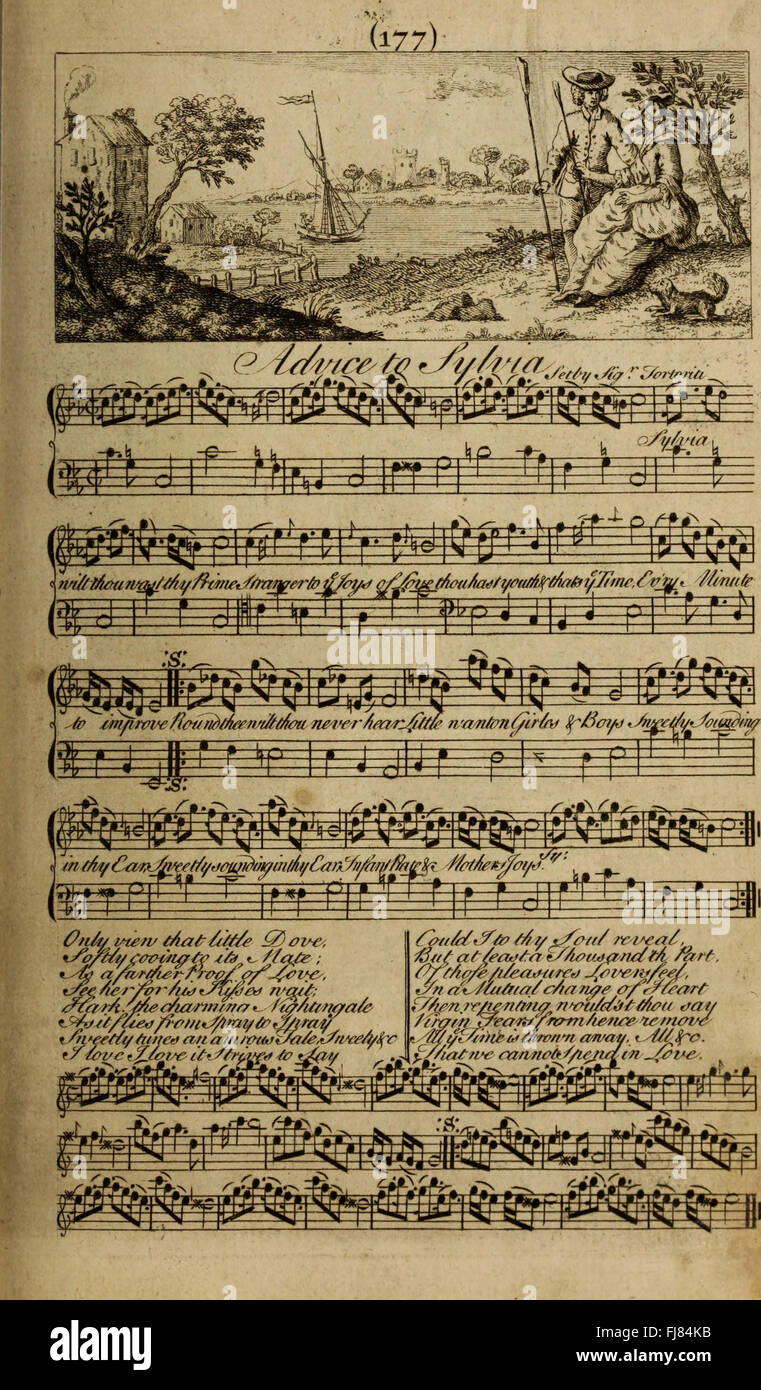 (177)
Advice to Sylvia Set by Sigr. Tortoriti
Sylvia
wilt thou wast thy Prime Stranger to ye Joys of Love thou hast youth & thats ye Time, Ev'ry Minute
:S:
to improve Round thee wilt thou never hear Little wanton Girles & Boys Sweetly Sounding
:S:
in thy Ear Sweetly sounding in thy Ear Infant Prate & Mothers Joys. Sy:
Only view that little Dove,
Softly cooing to its Mate;
As a farther Proof of Love,
See her for his Kisses wait;
Hark, the charming Nightingale
As it flies from Spray to Spray
Sweetly tunes an am'rous Tale Sweetly &c
I love I love it Strives to Say
Could I to thy Soul reveal,
But at least a Thousandth Part,
Of those pleasures Lovers feel,
In a Mutual change of Heart
Then repenting would'st thou say
Virgin Fears from hence remove
All ye Time is thrown away, All &c.
That we cannot Spend in Love.
:S:
alamy
alamy stock photo
FJ84KB
www.alamy.com